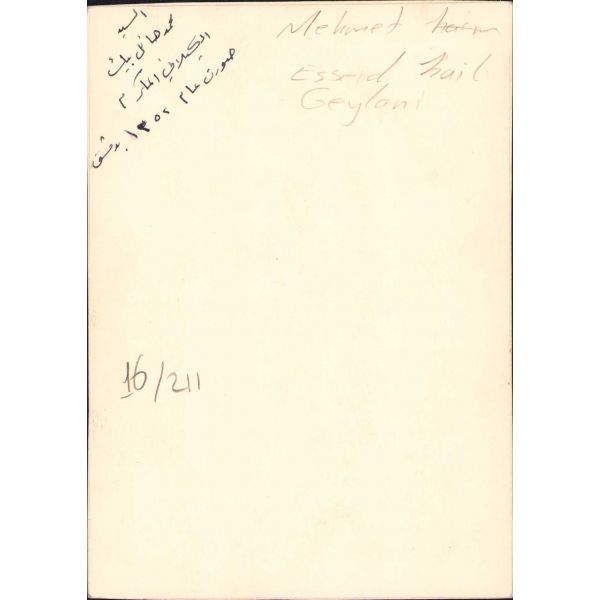 السيد
محمد هائل بيك
الكيلاني المكرم
صورت عام ١٣٥٢ بدمشق
Mehmet
Esseid Hail
Geylani
16/211